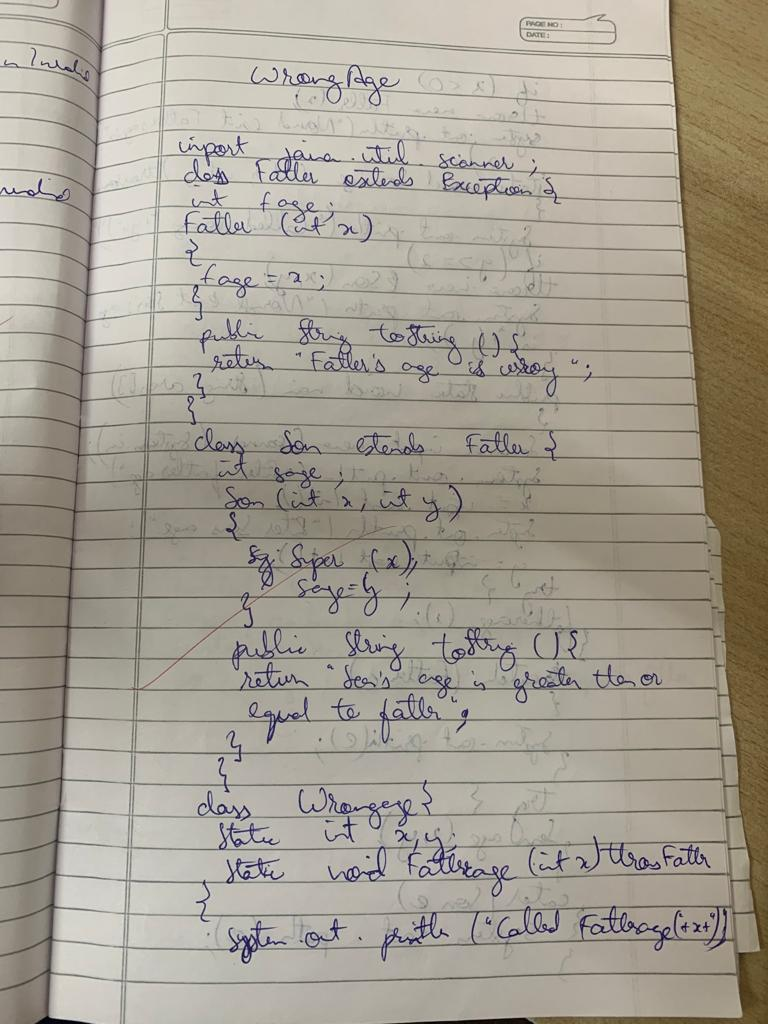 PAGE NO :
DATE :
WrongAge
import java.util.scanner;
class Father extends Exception {
int fage;
Father (int x)
{
fage = x;
}
public String toString () {
return "Father's age is wrong";
}
}
class Son extends Father {
int sage;
Son (int x, int y)
{
Super (x);
sage=y;
}
public String toString () {
return "Son's age is greater than or
equal to father";
}
}
class Wrongage {
static int x,y;
static void Fatherage (int x) throws Father
{
System.out.println ("Called Fatherage("+x+")